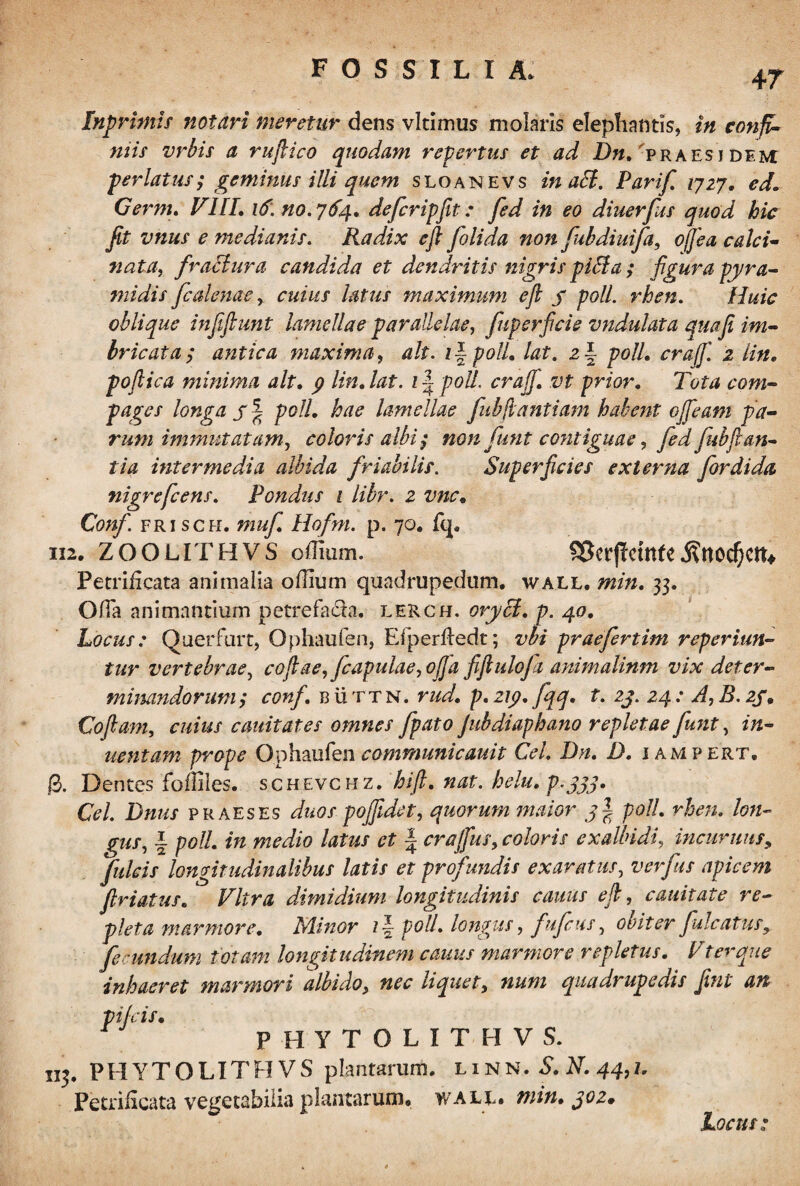 FOSSILIA.
47
Inprimis notari meretur dens vltimus molaris elephantis, in confi-
niis vrbis a ruſtico quodam repertus et ad Dn. PRAESIDEM
perlatus; geminus illi quem SLOANEVS in act. Pariſ. 1727. ed.
Germ. VIII. 16. no. 764. deſcripſit: ſed in eo diuerſus quod hic
ſit vnus e medianis. Radix eſt ſolida non ſubdiuiſa, oſſea calci-
nata, fractura candida et dendritis nigris picta; figura pyra-
midis ſcalenae, cuius latus maximum eſt 5 poll. rhen. Huic
oblique inſiſtunt lamellae parallelae, ſuperficie vndulata quaſi im-
bricata; antica maxima, alt. 1½ poll. lat. 2½ poll. craſſ. 2 lin.
poſtica minima alt. 9 lin. lat. 1¼ poll. craſſ. vt prior. Tota com-
pages longa 5⅛ poll. hae lamellae ſubſtantiam habent oſſeam pa-
rum immutatam, coloris albi; non ſunt contiguae, ſed ſubſtan-
tia intermedia albida friabilis. Superficies externa ſordida
nigreſcens. Pondus 1 libr. 2 vnc.
Conf. FRISCH. muſ. Hofm. p. 70. ſq.
112. ZOOLITHVS oſſium. Verſteinte Knochen.
Petrificata animalia oſſium quadrupedum. WALL. min. 33.
Oſſa animantium petrefacta. LERCH. oryct. p. 40.
Locus: Querfurt, Ophauſen, Eſperſtedt; vbi praeſertim reperiun-
tur vertebrae, coſtae, ſcapulae, oſſa fiſtuloſa animalinm vix deter-
minandorum; conf. BÜTTN. rud. p. 219. ſqq. t. 23. 24: A, B. 25.
Coſtam, cuius cauitates omnes ſpato ſubdiaphano repletae ſunt, in-
uentam prope Ophauſen communicauit Cel. Dn. D. IAMPERT.
β. Dentes foſſiles. SCHEVCHZ. hiſt. nat. helu. p. 333.
Cel. Dnus PRAESES duos poſſidet, quorum maior 3⅛ poll. rhen. lon-
gus, ½ poll. in medio latus et ¼ craſſus, coloris exalbidi, incuruus,
ſulcis longitudinalibus latis et profundis exaratus, verſus apicem
ſtriatus. Vltra dimidium longitudinis cauus eſt, cauitate re-
pleta marmore. Minor 1½ poll. longus, fuſcus, obiter ſulcatus,
ſecundum totam longitudinem cauus marmore repletus. Vterque
inhaeret marmori albido, nec liquet, num quadrupedis ſint an
piſcis.
PHYTOLITHVS.
113. PHYTOLITHVS plantarum. LINN. S. N. 44, 1.
Petrificata vegetabilia plantarum. WALL. min. 302.
Locus: